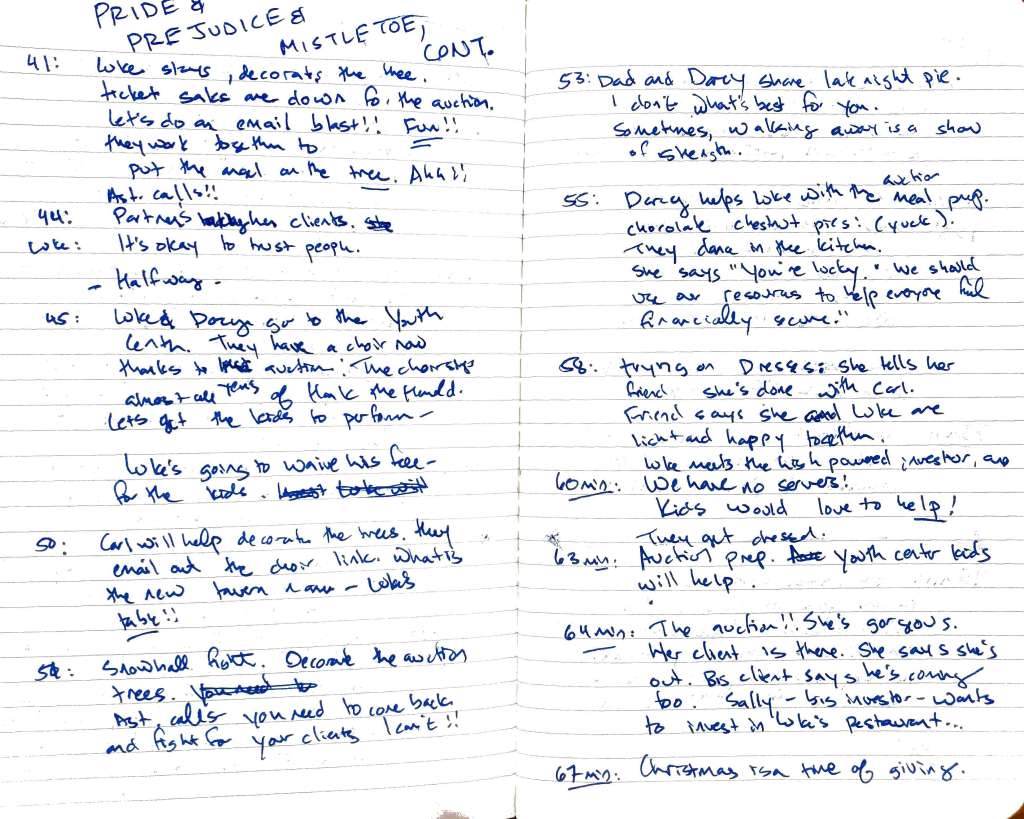 PRIDE &
PREJUDICE &
MISTLETOE,
CONT.
41: Luke stays, decorates the tree.
ticket sales are down for the auction.
let's do an email blast!! Fun!!
they work together to
put the angel on the tree. Ahh!!
Ast. calls!!
44: Partner's taking her clients.
Luke: It's okay to trust people.
- Halfway -
45: Luke & Darcy go to the Youth
Center. They have a choir now
thanks to auction: The choir sings
almost all yens of Hark the Herald.
Lets get the kids to perform -
Luke's going to waive his fee -
for the kids.
50: Carl will help decorate the trees. they
email out the choir link. What is
the new tavern name - Luke's
table!!
54: Snowball fight. Decorate the auction
trees. You need to
Ast. calls you need to come back
and fight for your clients I can't!!
53: Dad and Darcy share late night pie.
I don't what's best for you.
Sometimes, walking away is a show
of strength.
55: Darcy helps Luke with the auction meal prep.
chocolate chestnut pies: (yuck).
They dance in the kitchen.
She says "You're lucky." We should
use our resources to help everyone feel
financially secure."
58: trying on Dresses: she tells her
friend she's done with Carl.
Friend says she and Luke are
light and happy together.
Luke meets the high powered investor, and
60 min: We have no servers!
Kids would love to help!
They get dressed.
63 min: Auction prep. Youth center kids
will help.
64 min: The auction!! She's gorgeous.
Her client is there. She says she's
out. Big client says he's coming
too. Sally - big investor - wants
to invest in Luke's Restaurant...
67 min: Christmas is a time of giving.